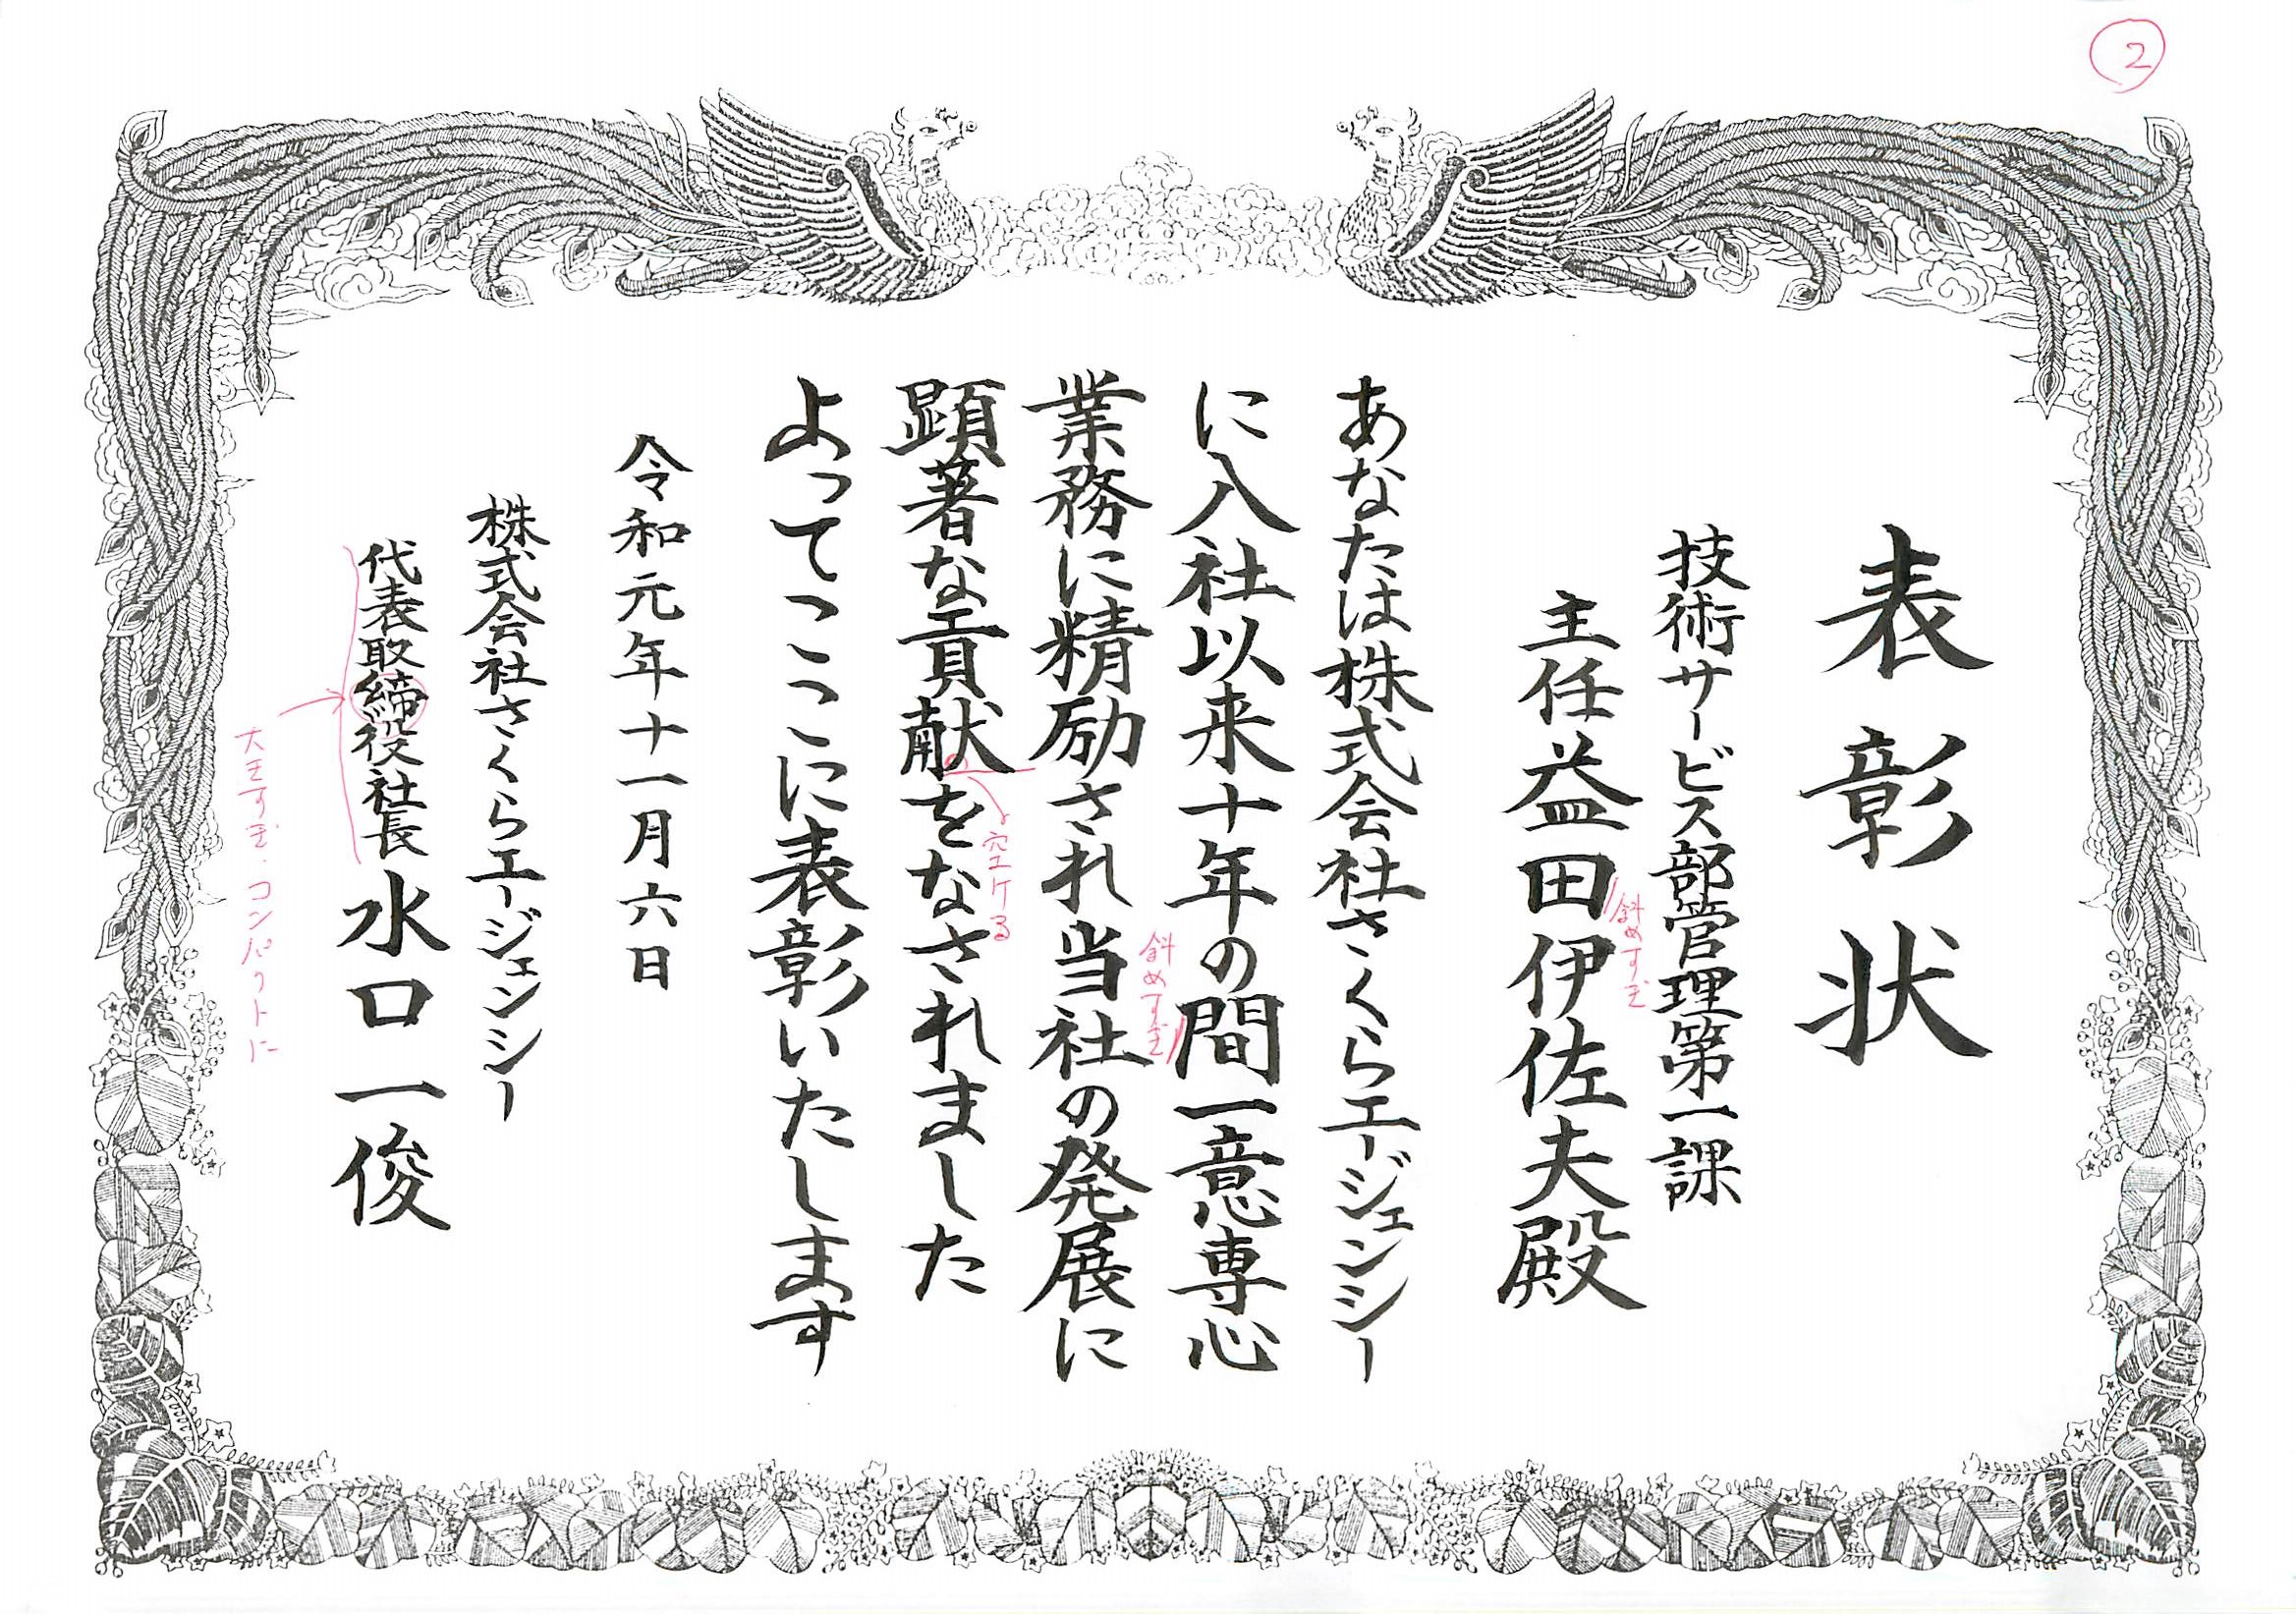 ②
表彰状
技術サービス部管理第一課
主任益田伊佐夫殿
斜めすぎ
あなたは株式会社さくらエージェンシー
に入社以来十年の間一意専心
斜めすぎ
業務に精励され当社の発展に
顕著な貢献をなされました
空ける
よってここに表彰いたします
令和元年十一月六日
株式会社さくらエージェンシー
代表取締役社長水口一俊
大きすぎ.コンパクトに